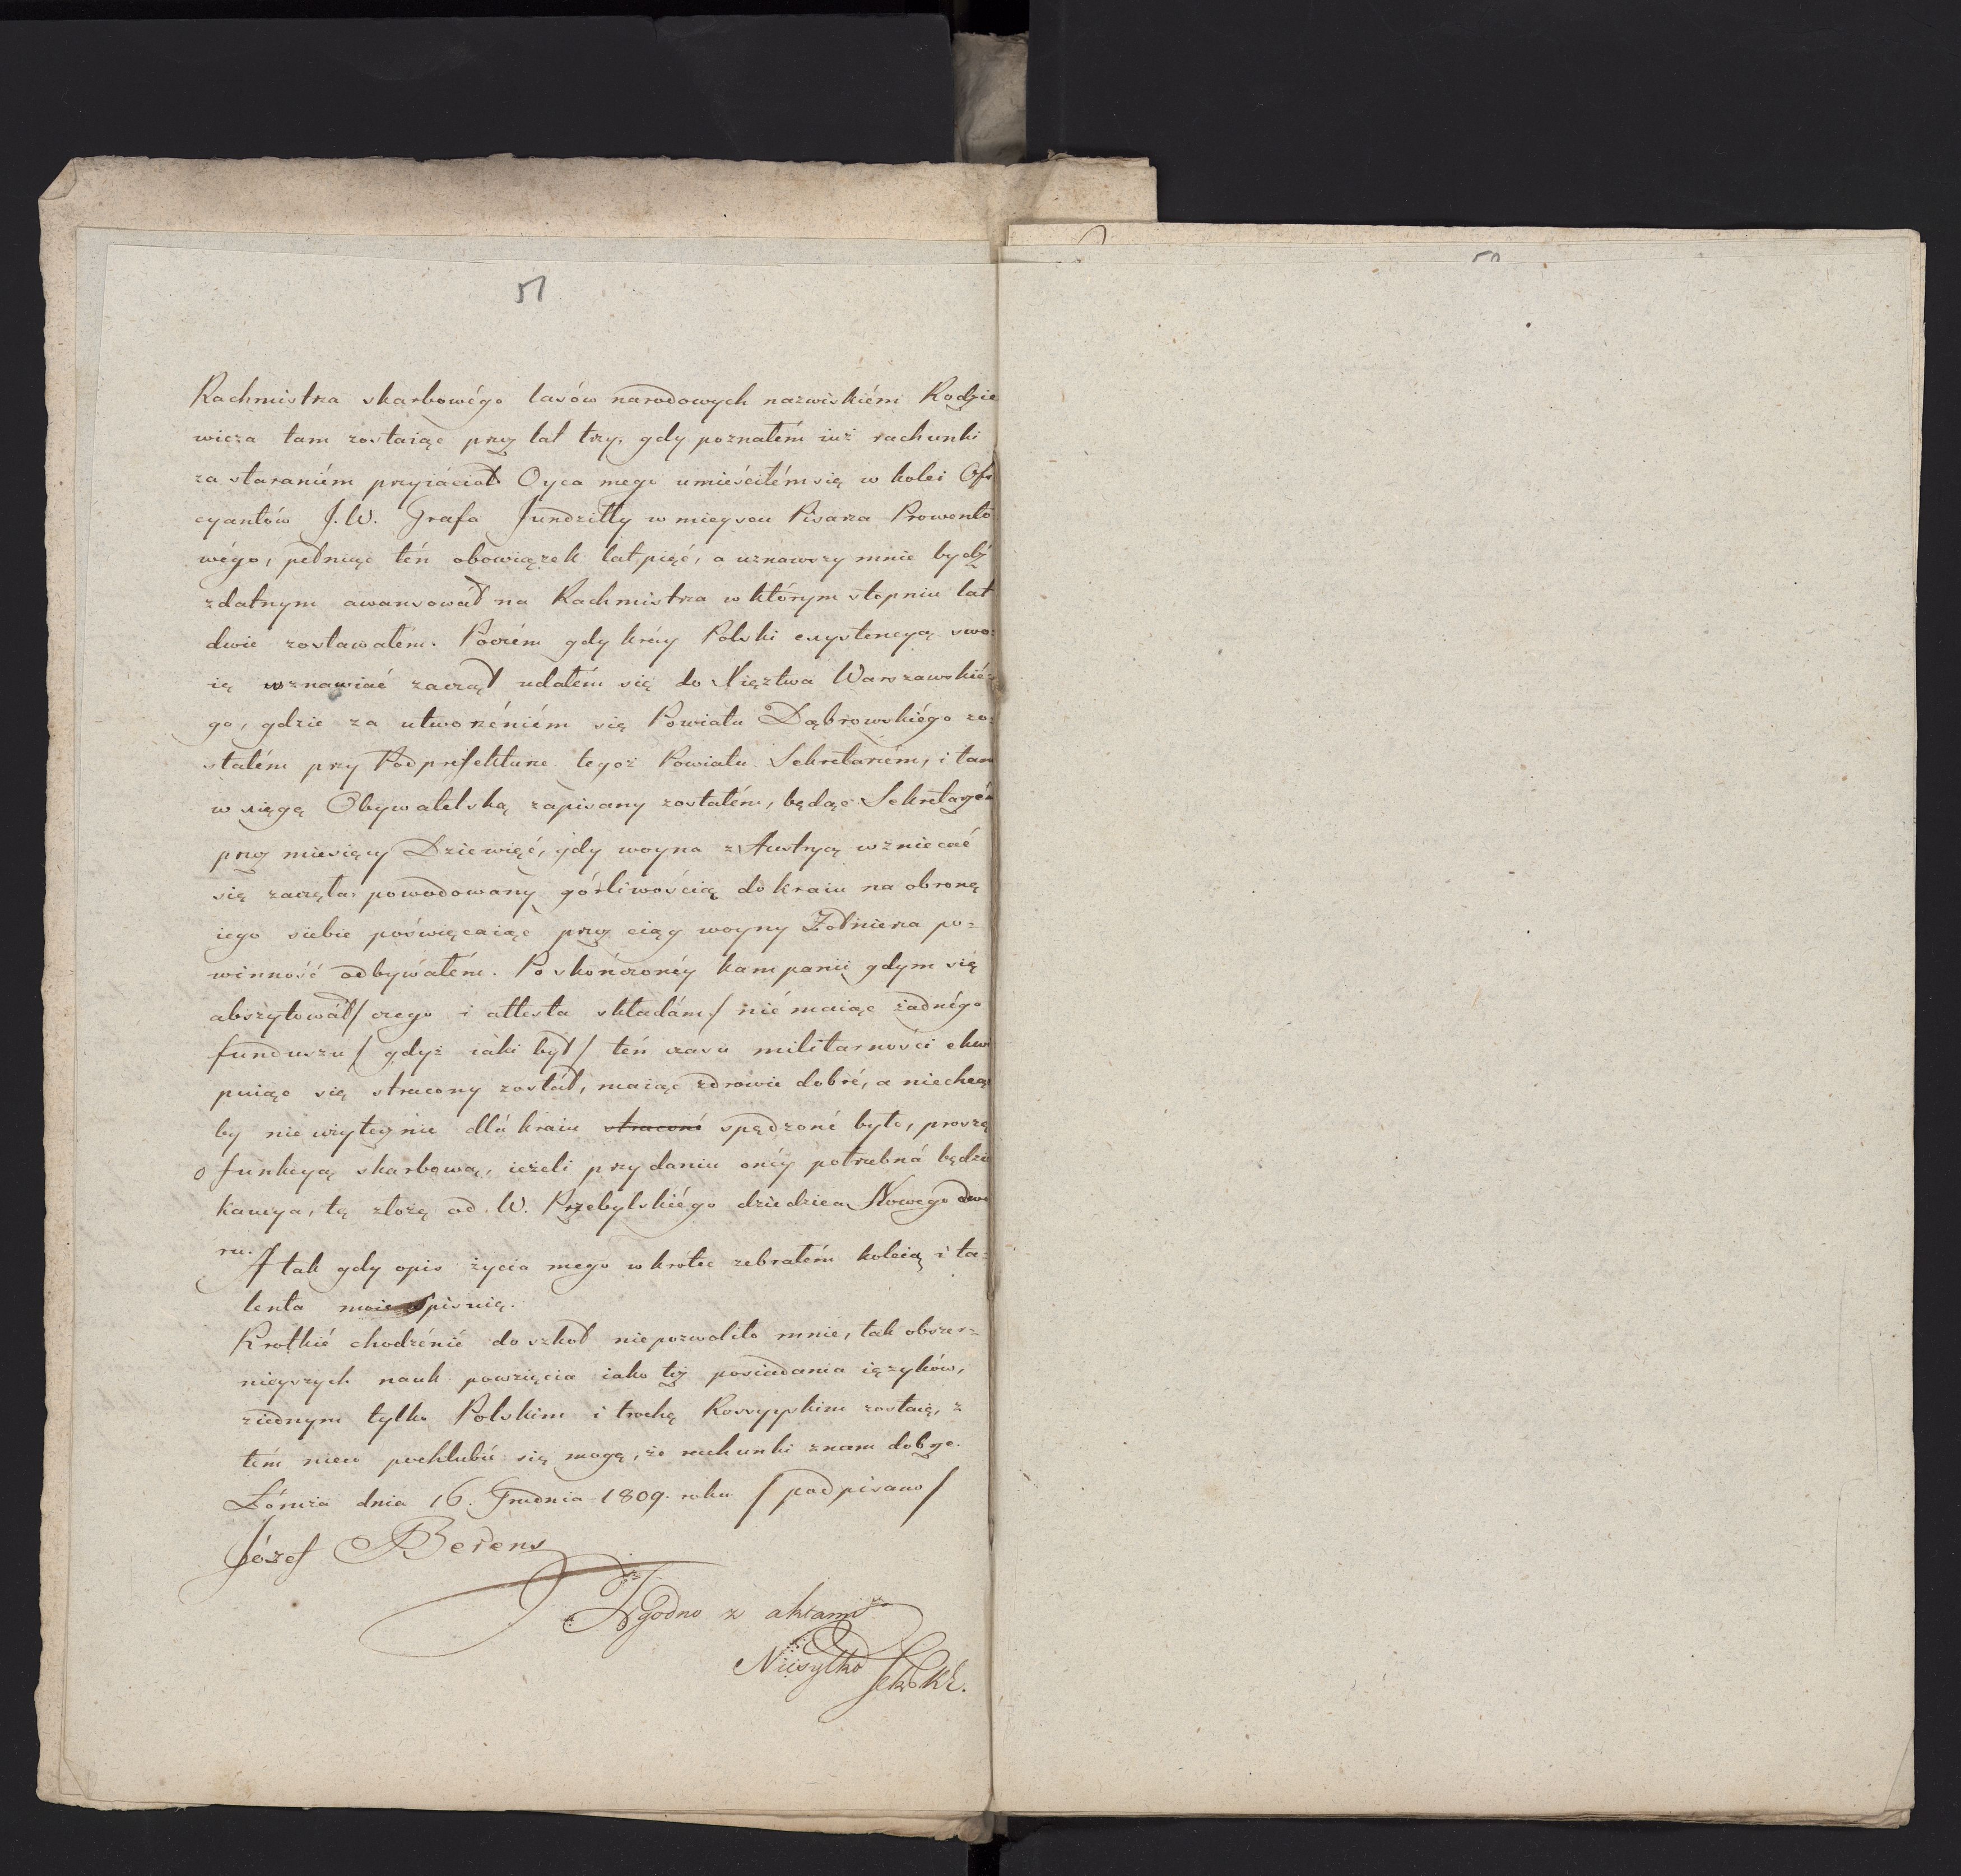 51
Rachmistrza skarbowégo lasów narodowych nazwiskiém Rodzie
wicza tam zostaiąc przez lat trzy, gdy poznałém iuż rachunki
za staraniém przyiációł Oyca mego umieściłém się w kolei Ofi
cyantów J. W. Grafa Jundziłły w mieyscu Pisarza Prowento
wégo, pełniąc tén obowiązek lat pięć, a uznawszy mnie bydź
zdatnym awansowáł na Rachmistrza w którym stopniu lat
dwie zostawałém. Poczém gdy kráy Polski exystencyą swo=
ię wznawiać zaczął udałém się do Xięztwa Warszawskié=
go, gdzie za utworzéniém się Powiatu Dąbrowskiégo zo=
stałém przy Podprefekturze tegoż Powiatu Sekretarzém, i tam
w xięgę Obywatelską zapisany zostałém, będąc Sekretarzém
przez miesięcy Dziewięć, gdy woyna z Austryą wzniecać
się zaczęła, powodowany górliwością do kraiu na obronę
iego siebie poświęcaiąc przez ciąg woyny Żołnierza po=
winność odbywałém. Po skończonéy kampanii gdym się
abszytowáł/ czego i attesta składám/ nié maiąc żadnégo
funduszu/ gdyż iáki był/ tén czasu militarności ekwi
puiąc się stracony zostáł, maiąc zdrowie dobré, a niechcąc
by nieużytecznie dlá kraiu straconé spędzoné było, proszę
o funkcyą skarbową, ieżeli przy daniu onéy potrzebná będzie
kaucya, tę złożę od W. Przebylskiégo dziedzica Nowego dwo
ru.
A tak gdy opis życia mego w krotce zebrałém koleią i ta=
lenta moie opisuię.
Krotkié chodzénié do szkół niepozwoliło mnie, tak obszer=
nieyszych nauk powzięcia iako też posiadania ięzyków,
z iednym tylko Polskim i trochę Rossyyskim zostaię, z
tém nieco pochlubić się mogę, że rachunki znam dobrze.
Łómża dnia 16. Grudnia 1809. roku / podpisano /
Józef Berens
Zgodno z aktami